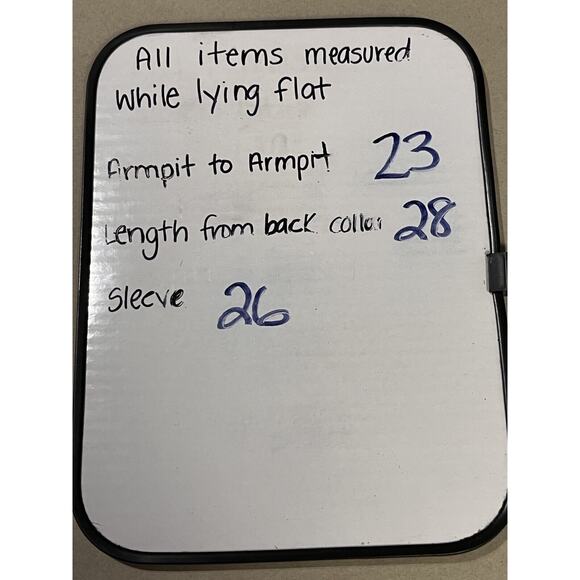 All items measured
while lying flat
Armpit to Armpit 23
Length from back collar 28
Sleeve 26